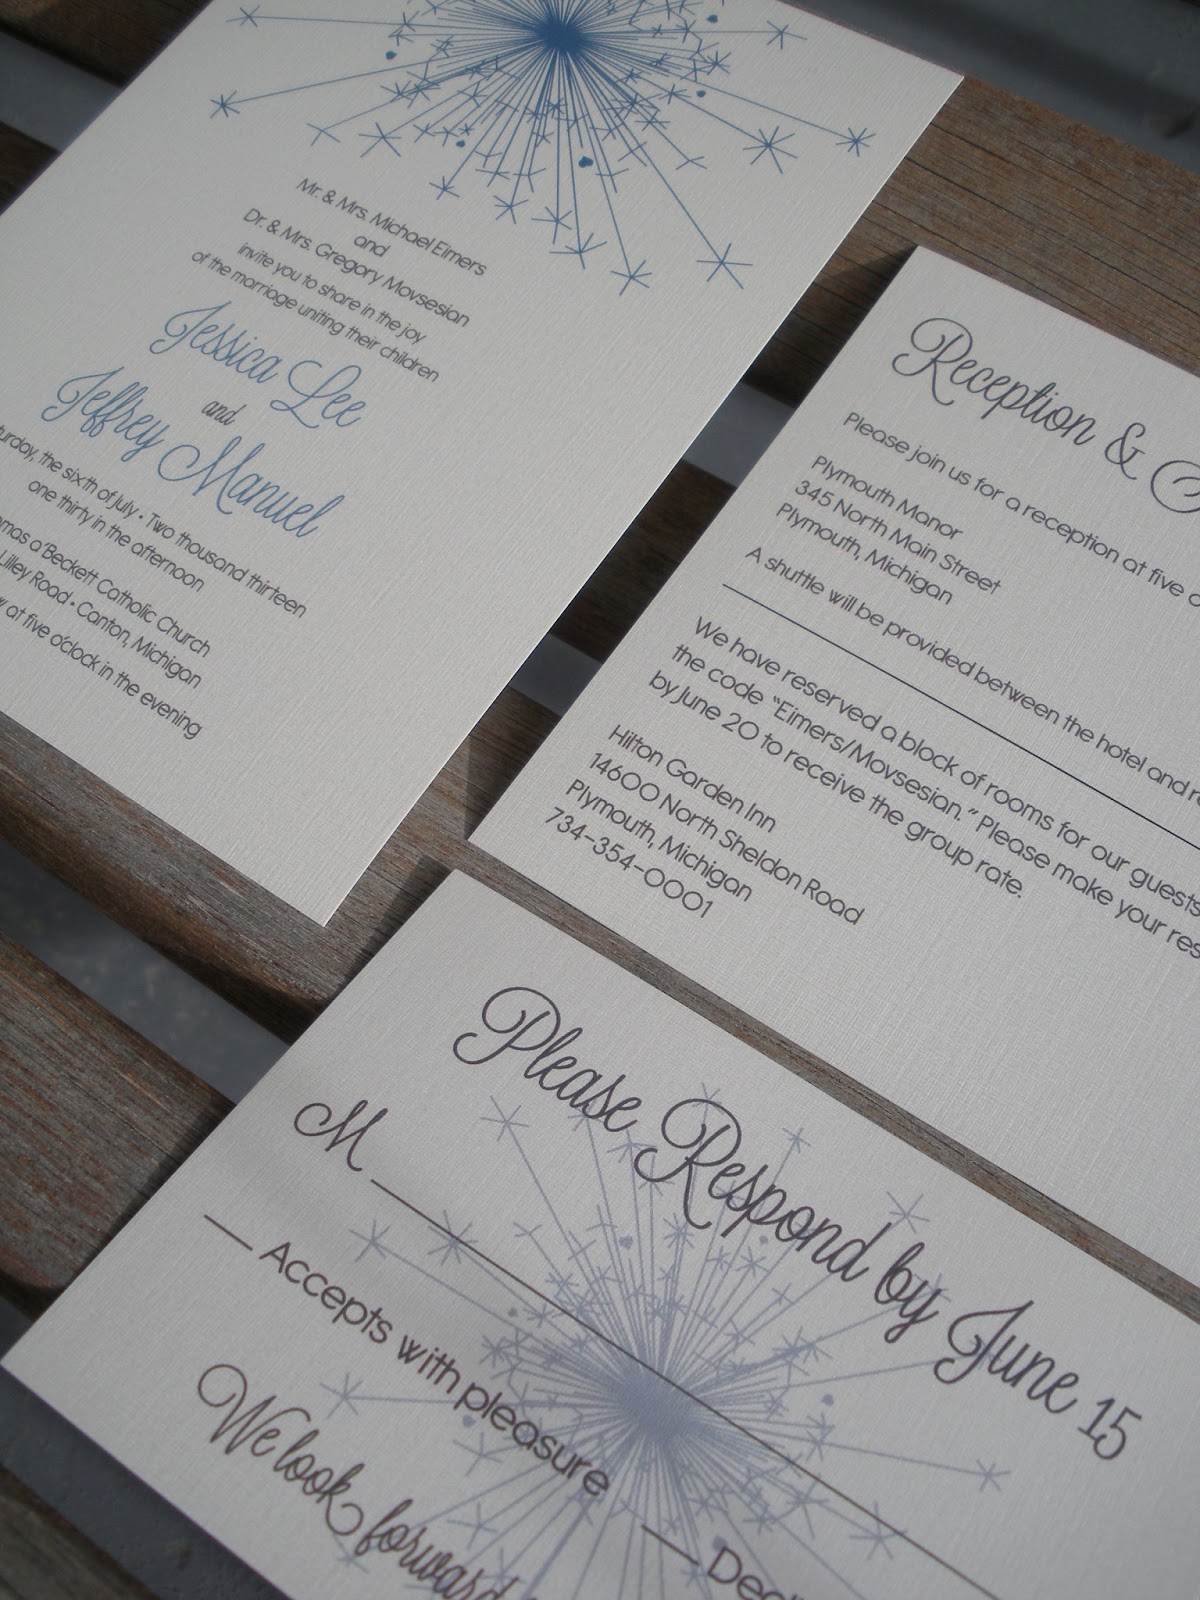 Mr. & Mrs. Michael Eimers
and
Dr. & Mrs. Gregory Movsesian
invite you to share in the joy
of the marriage uniting their children
Jessica Lee
and
Jeffrey Manuel
the sixth of july • Two thousand thirteen
one thirty in the afternoon
a'Beckett Catholic Church
Lilley Road • Canton, Michigan
at five o'clock in the evening
Reception &
Please join us for a reception at five
Plymouth Manor
345 North Main Street
Plymouth, Michigan
A shuttle will be provided between the hotel and
We have reserved a block of rooms for our guests
the code "Eimers/Movsesian." Please make your
by June 20 to receive the group rate.
Hilton Garden Inn
14600 North Sheldon Road
Plymouth, Michigan
734-354-0001
Please Respond by June 15
M
Accepts with pleasure
We look forward